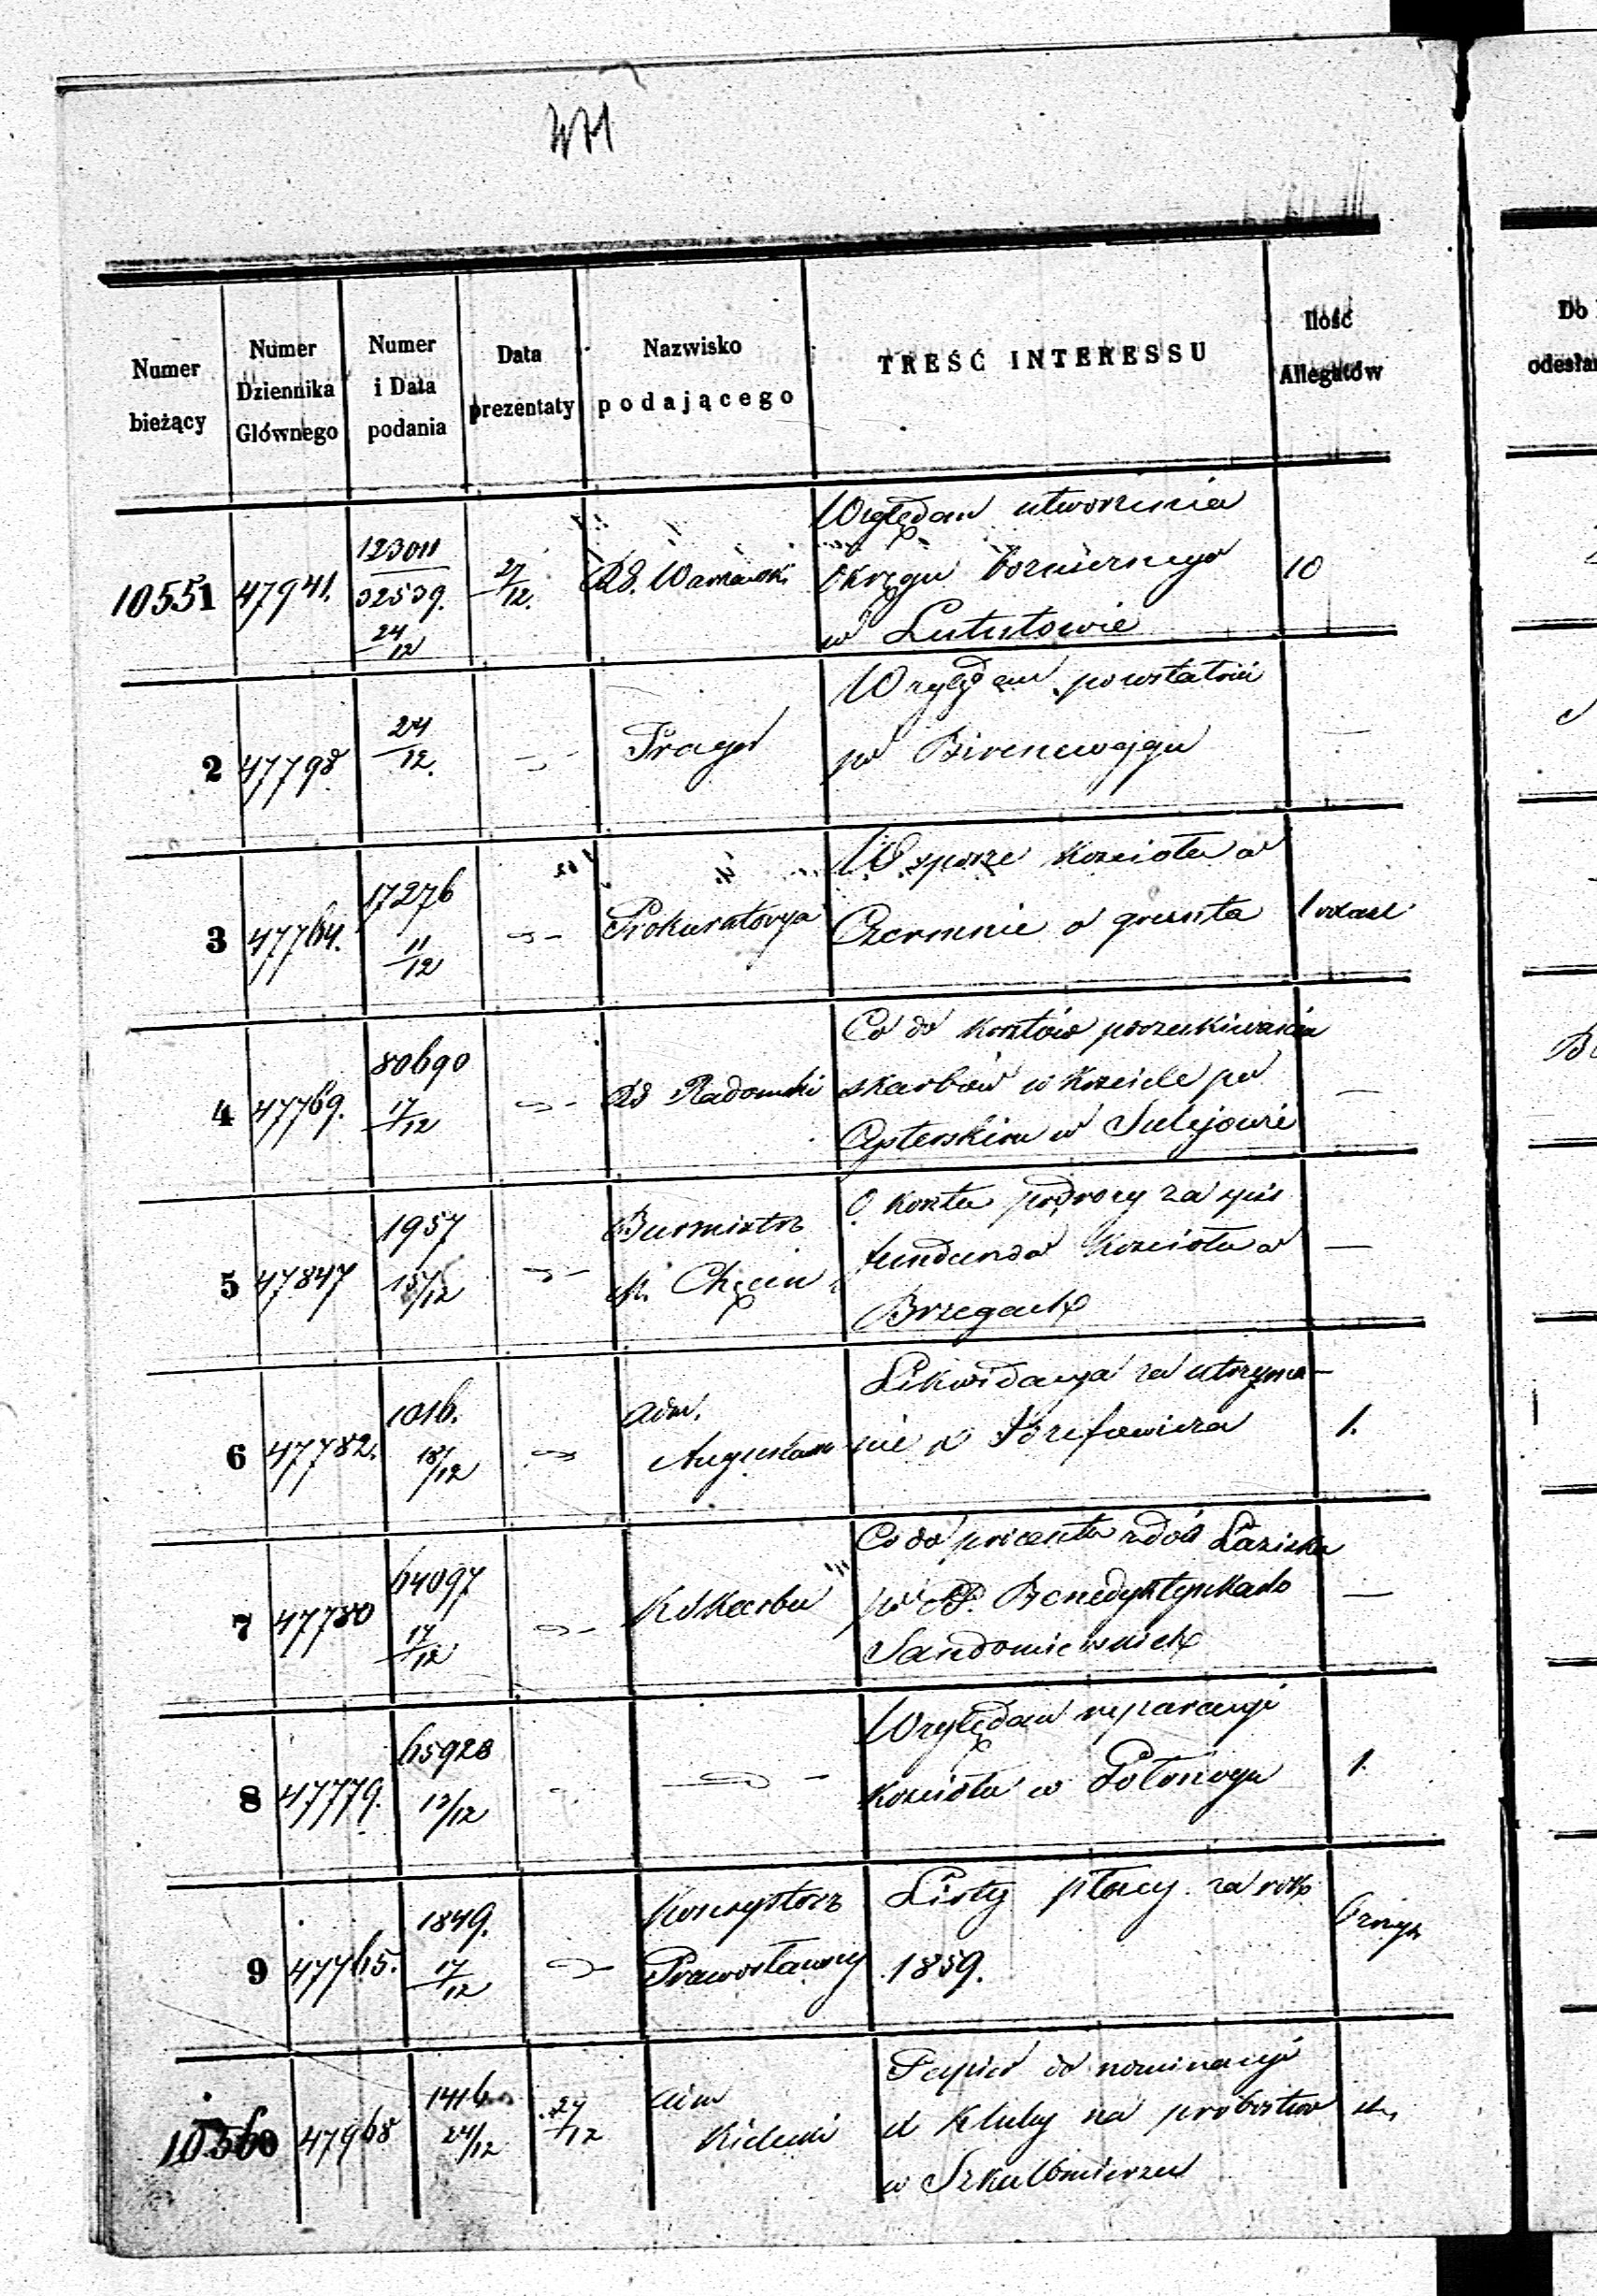 Numer bieżący
Numer Dziennika Głównego
Numer i Data podania
Data prezentaty
Nazwisko podającego
TREŚĆ INTERESSU
Ilość Allegatów
Do
odesłan
10551
47941.
123011
32539.
24/12
27/12.
Względem utworzenia
Okręgu bożnicznego
w Lututowie
10
2
47798
24/12.
Względem
3
47764.
17276
11/12
Prokuratorya
W sporze Kościoła w
Czermnie o grunta
4
47769.
80690
17/12
RG Radomski
Co do kosztów poszukiwania
skarbów w Kościele po
Cysterskim w Sulejowie
—
5
47847
1957
/12
Burmistrz
M. Chęcin
O koszta podróży za spis
fundum Kościoła w
Brzegach
—
6
47782.
1016.
18/12
Adm.
Augustow
Likwidacya za utrzyma-
nie X Józefowicza
1.
7
47780
64097
17/12
K Skarbu
Co do procentu z dóbr Łaziska
po PP. Benedyktynkach
Sandomierskich
—
8
47779.
65928
/12
Względem reparacyi
Kościoła w Gołonogu
1.
9
47765.
1849.
17/12
Konsystorz
Prawosławny
Listy płacy za rok
1859.
10560
47968
1416
24/12
27/12
Adm
Kielecki
Papier do nominacyi
X Kluby na probostwo
w Szkalbmierzu